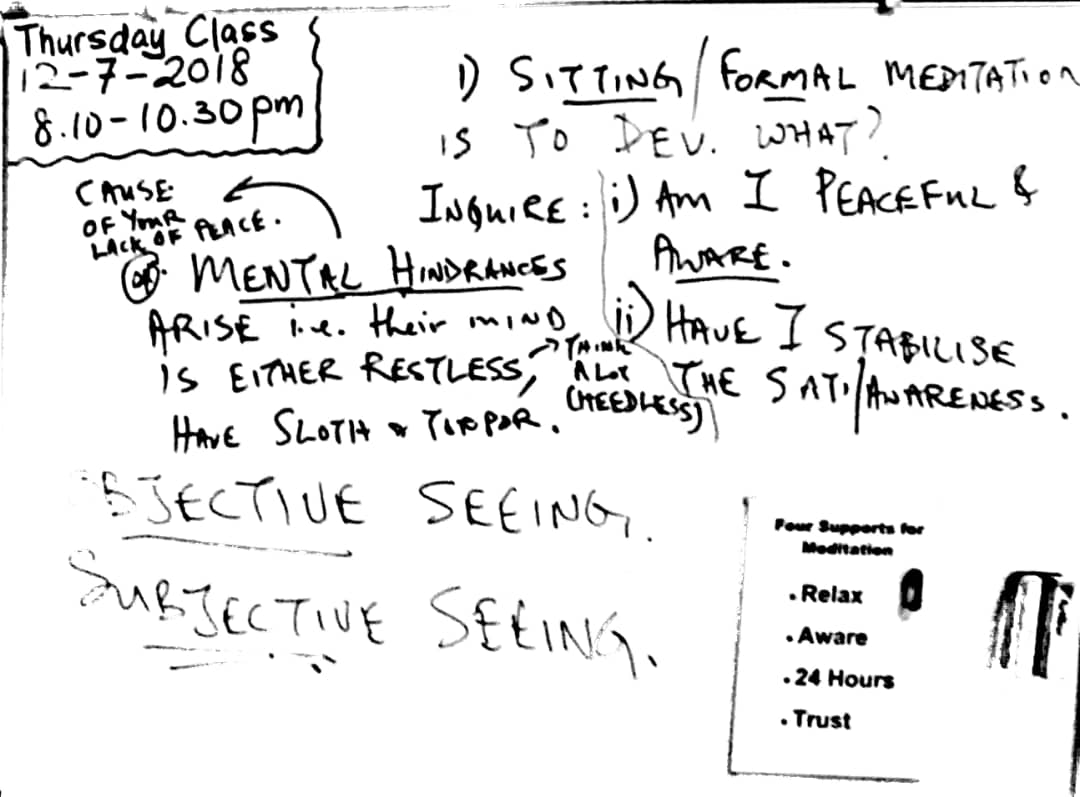 Thursday Class
12-7-2018
8.10-10.30 pm
1) SITTING/FORMAL MEDITATION
IS TO DEV. WHAT?
INQUIRE: i) AM I PEACEFUL &
AWARE.
ii) HAVE I STABILISE
THE SATI/AWARENESS.
CAUSE
OF YOUR
LACK OF PEACE.
OR MENTAL HINDRANCES
ARISE i.e. their MIND
IS EITHER RESTLESS,
→ THINK
A LOT
(HEEDLESS)
HAVE SLOTH & TORPOR.
OBJECTIVE SEEING.
SUBJECTIVE SEEING.
Four Supports for
Meditation
• Relax
• Aware
• 24 Hours
• Trust